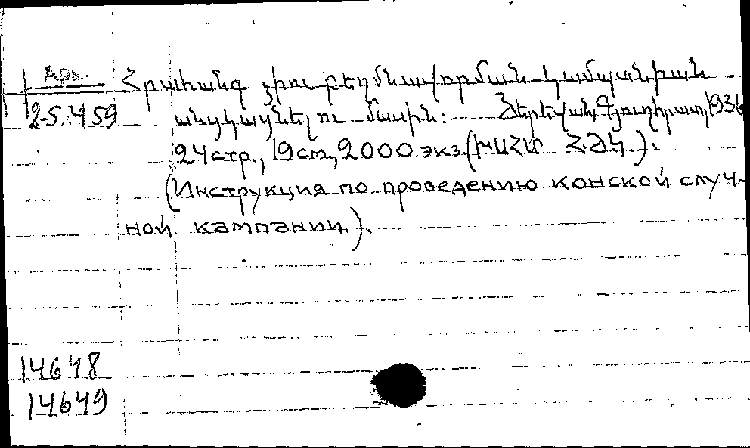 Арм. Հրահանգ ձիու բեղմնավորման կամպանիան
2-5.459 անցկացնելու մասին: Յերեվան, Գյուղհրատ, 193
24 стр., 19 см, 2000 экз. (ԽՍՀՄ ՀՖԿ.).
(Инструкция по проведению конской случ-
ной кампании.).
14648
14649